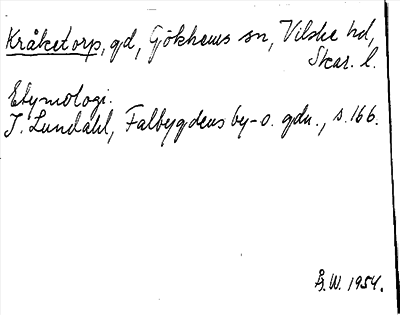 Kråketorp, gd, Gökhems sn, Vilske hd,
Skar. l.
Etymologi.
I. Lundahl, Falbygdens by- o. gdn., s. 166.
Å.W. 1954.